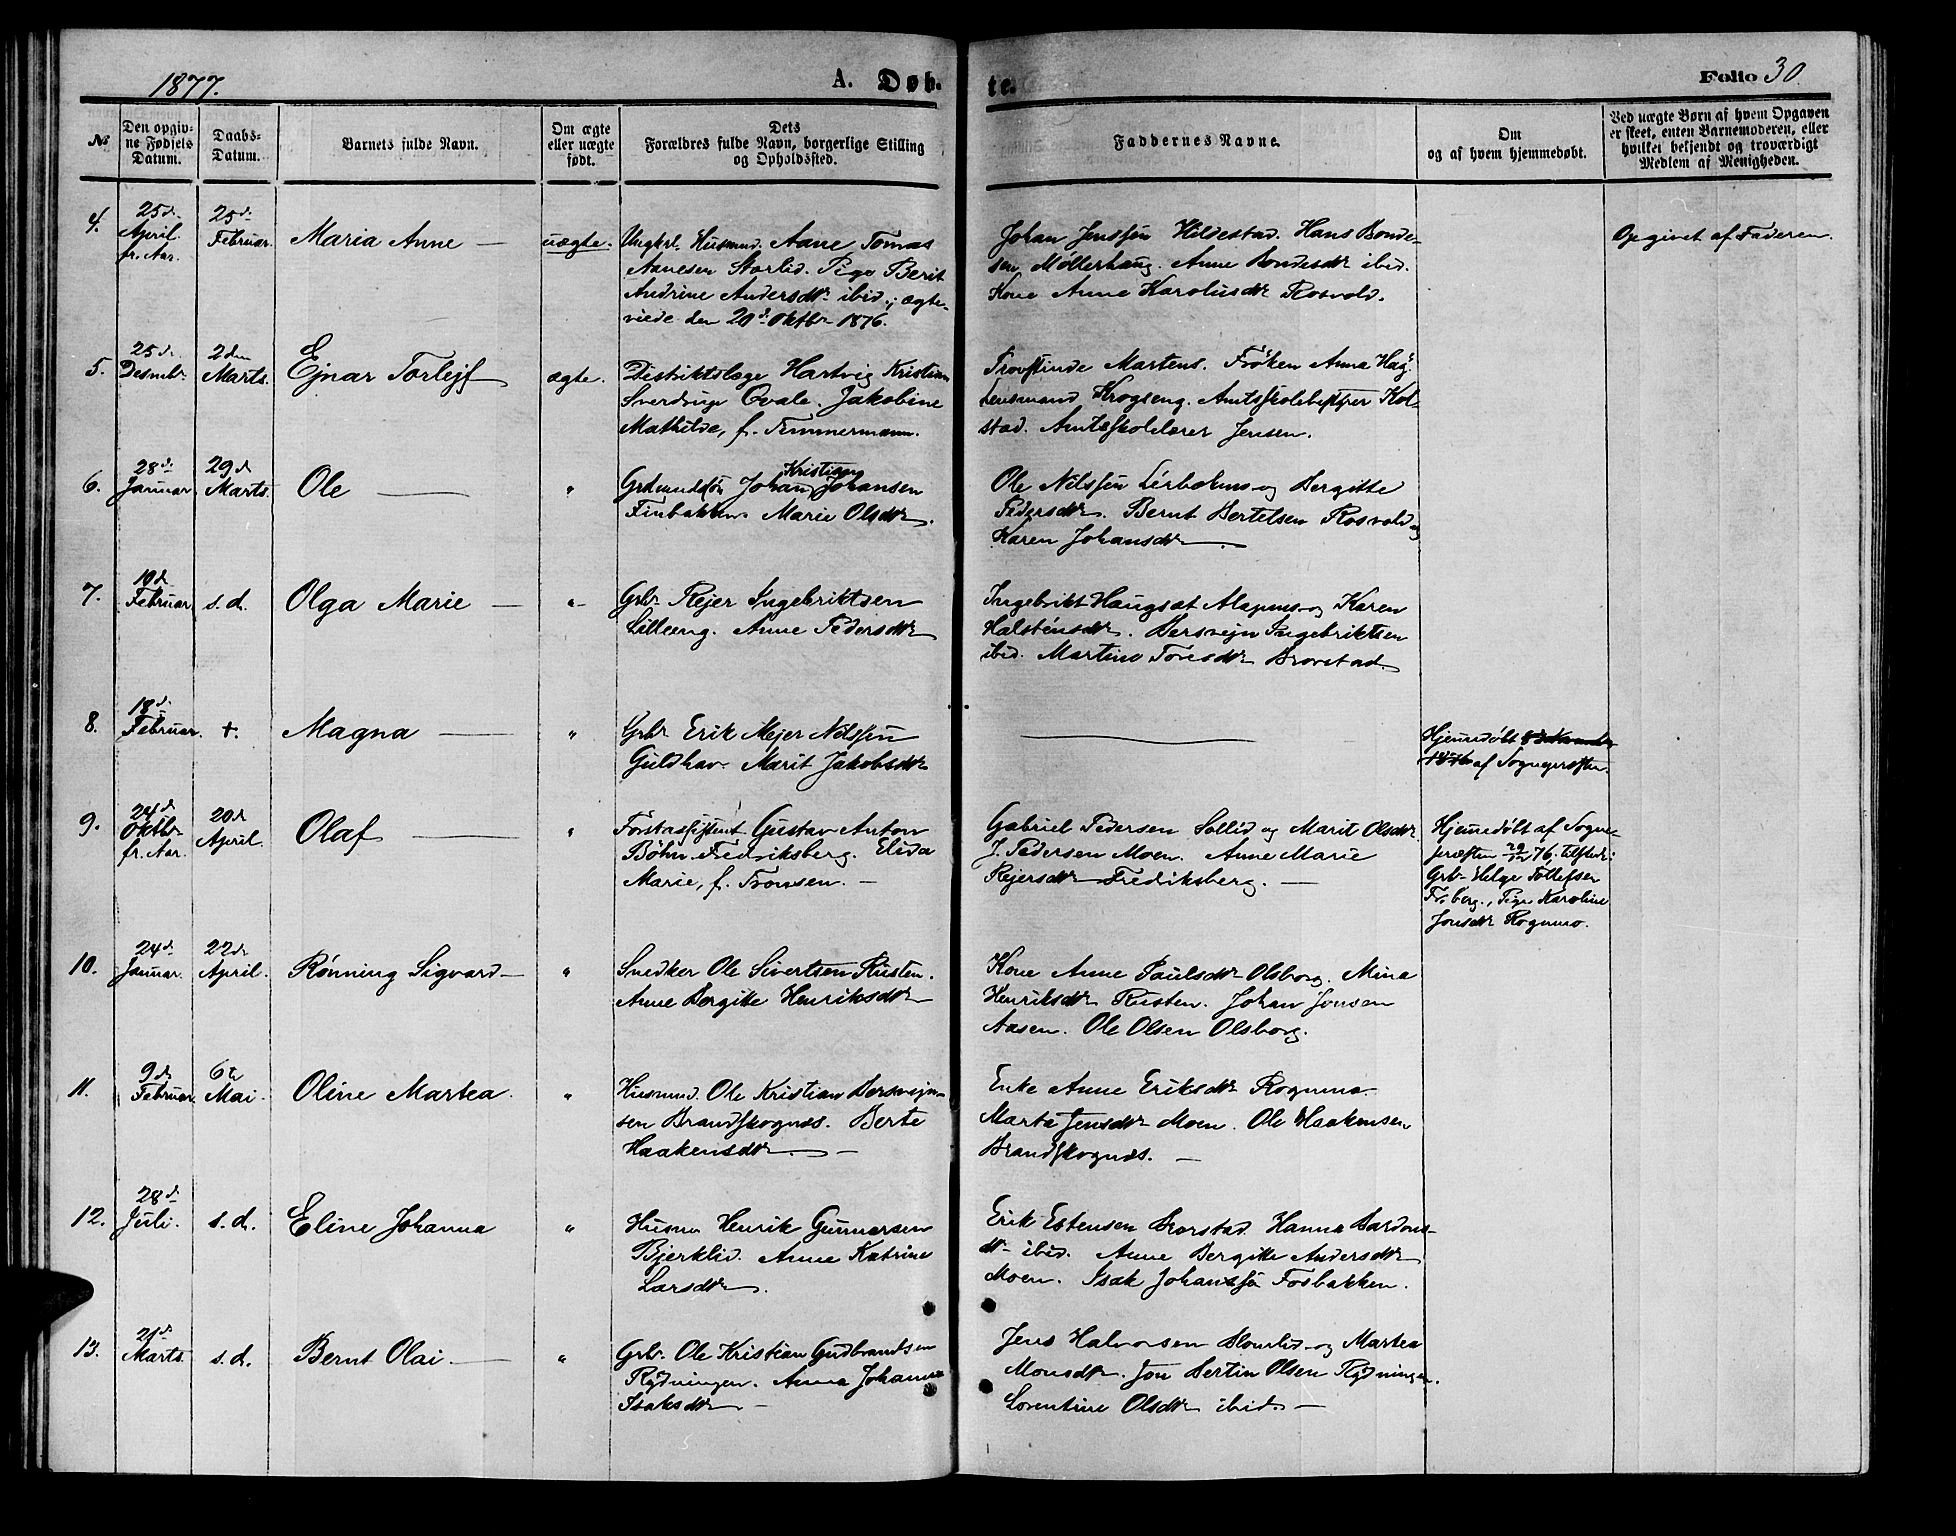 1877.
A. Døb-
te.
Folio 30
№
Den opgiv-
ne Fødsels
Datum.
Daabs-
Datum.
Barnets fulde Navn.
Om ægte
eller uægte
født.
Dets
Forældres fulde Navn, borgerlige Stilling
og Opholdssted.
Faddernes Navne.
Om
og af hvem hjemmedøbt.
Ved uægte Børn af hvem Opgaven
er skeet, enten Barnemoderen, eller
hvilket bekjendt og troværdigt
Medlem af Menigheden.
4.
25d.
April
fr. Aar.
25d.
Februar.
Maria Anne —
uægte.
Ungkrl. Husmnd. Aane Tomas
Aanesen Storlid. Pige Berit
Andrine Andersdtr ibid.; ægte-
viede den 29d. Oktbr 1876.
Johan Jenssen Hildestad. Hans Bonde-
sen Møllerhaug. Anne Bondesdtr ibid.
Kone Anne Karolusdtr Rosvold.
Opgivet af Faderen.
5.
25d.
Desmbr.
2den
Marts.
Ejnar Torlejf
ægte.
Distriktslæge Hartvig Kristian
Sverdrup Qvale. Jakobine
Mathilde, f. Timmermann.
Provstinde Martens. Frøken Anna Hag.
Lensmand Krogseng. Amtsskolebestyrer Kol-
stad. Amtsskolelærer Jensen.
6.
28d.
Januar
29d
Marts.
Ole —
"
Grdmandssøn Johan Kristian Johansen
Finbakken. Marie Olsdtr.
Ole Nilssen Leirholms og Bergitte
Pedersdtr. Bernt Bertelsen Rosvold og
Karen Johansdtr —
7.
19d
Februar
s. d.
Olga Marie —
"
Grbr Rejer Ingebriktsen
Lilleeng. Anne Pedersdtr
Ingebrikt Haugsæt Alapmo og Karen
Halstensdtr. Bersvejn Ingebriktsen
ibid. Martine Toresdtr Brorstad.
8.
18d.
Februar.
+.
Magna —
"
Grbr Erik Mejer Nilssen
Guldhav. Marit Jakobsdtr
Hjemmedøbt
af Sognepræsten.
9.
24d
Oktbr
fr. Aar.
20d
April.
Olaf —
"
Forstassistent Gustav Anton
Bøhn Fredriksberg. Elida
Marie, f. Tronsen. —
Gabriel Pedersen Sollid og Marit Olsdtr
J. Pedersen Moen. Anne Marie
Rejersdtr Fredriksberg. —
Hjemmedøbt af Sogne-
præsten 29/12 76, tilstede:
Grbr Helge Tollefsen
Fosberg., Pige Karoline
Jonsdtr Rognmo.
10.
24d.
Januar.
22d
April.
Rønning Sigvard —
"
Snedker Ole Sivertsen Rusten.
Anne Bergitte Henriksdtr
Kone Anne Paulsdtr Olsborg. Mina
Henriksdtr Rusten. Johan Jonsen
Aasen. Ole Olsen Olsborg.
11.
9d
Februar.
6te
Mai.
Oline Martea.
"
Husmnd. Ole Kristian Bersvejn-
sen Brandskognæs. Berte
Haakensdtr. —
Enke Anne Eriksdtr Rognmo.
Marta Jensdtr Moen. Ole Haakensen
Brandskognæs. —
12.
28d.
Juli.
s. d.
Eline Johanna
"
Husm. Henrik Gunnarsen
Bjerklid. Anne Katrine
Larsdtr.
Erik Estensen Brorstad. Hanna Bardons-
dtr ibid. Anne Bergitte Andersdtr
Moen. Isak Johanssen Fosbakken.
13.
21d
Marts.
s. d.
Bernt Olai. —
"
Grbr. Ole Kristian Gudbrandsen
Rydningen. Anna Johanna
Isaksdtr —
Jens Halvorsen Blomlid og Martea
Monsdtr. Jon Bertin Olsen Rydningen.
Lorentine Olsdtr ibid. —